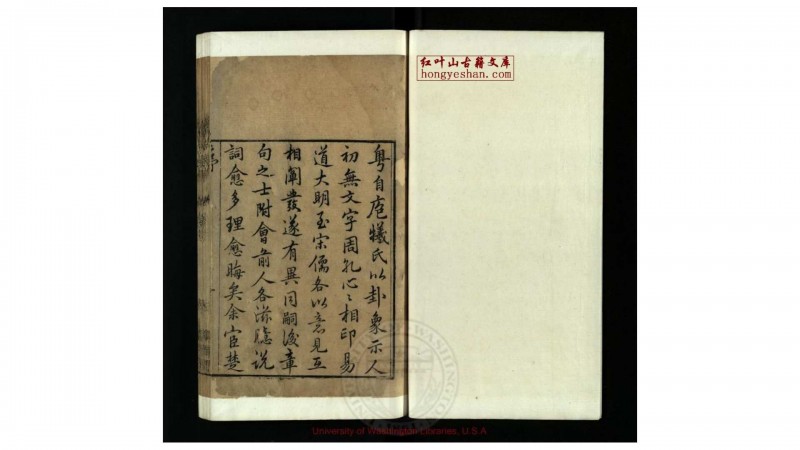 红叶山古籍文库
hongyeshan.com
粵自庖犧氏以卦象示人
初無文字周孔心〻相印易
道大明至宋儒各以意見互
相闡發遂有異同嗣後章
句之士附會前人各滋臆説
詞愈多理愈晦矣余宦楚
序
一
University of Washington Libraries, U.S.A